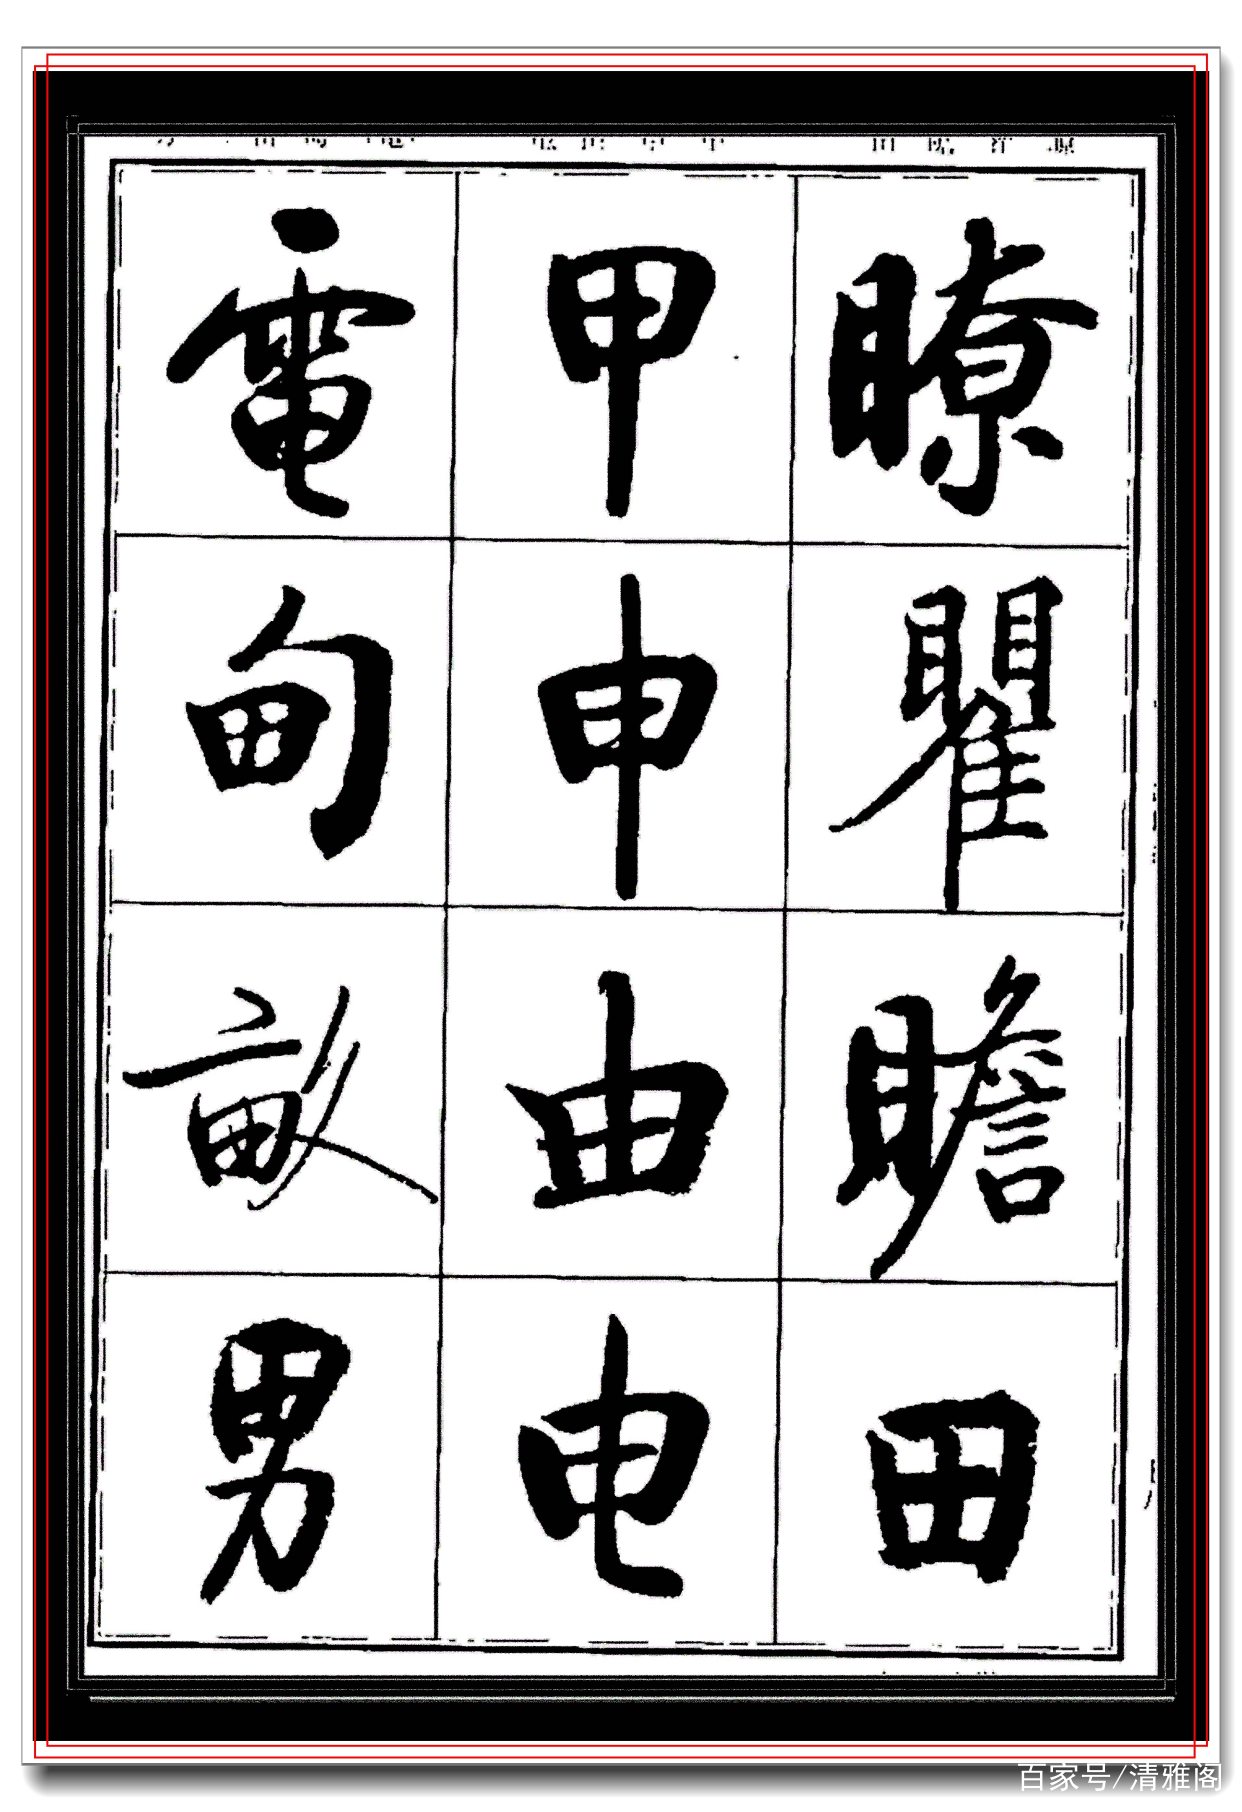 瞭瞿瞻田
甲申由电
電甸畝男
百家号/清雅阁